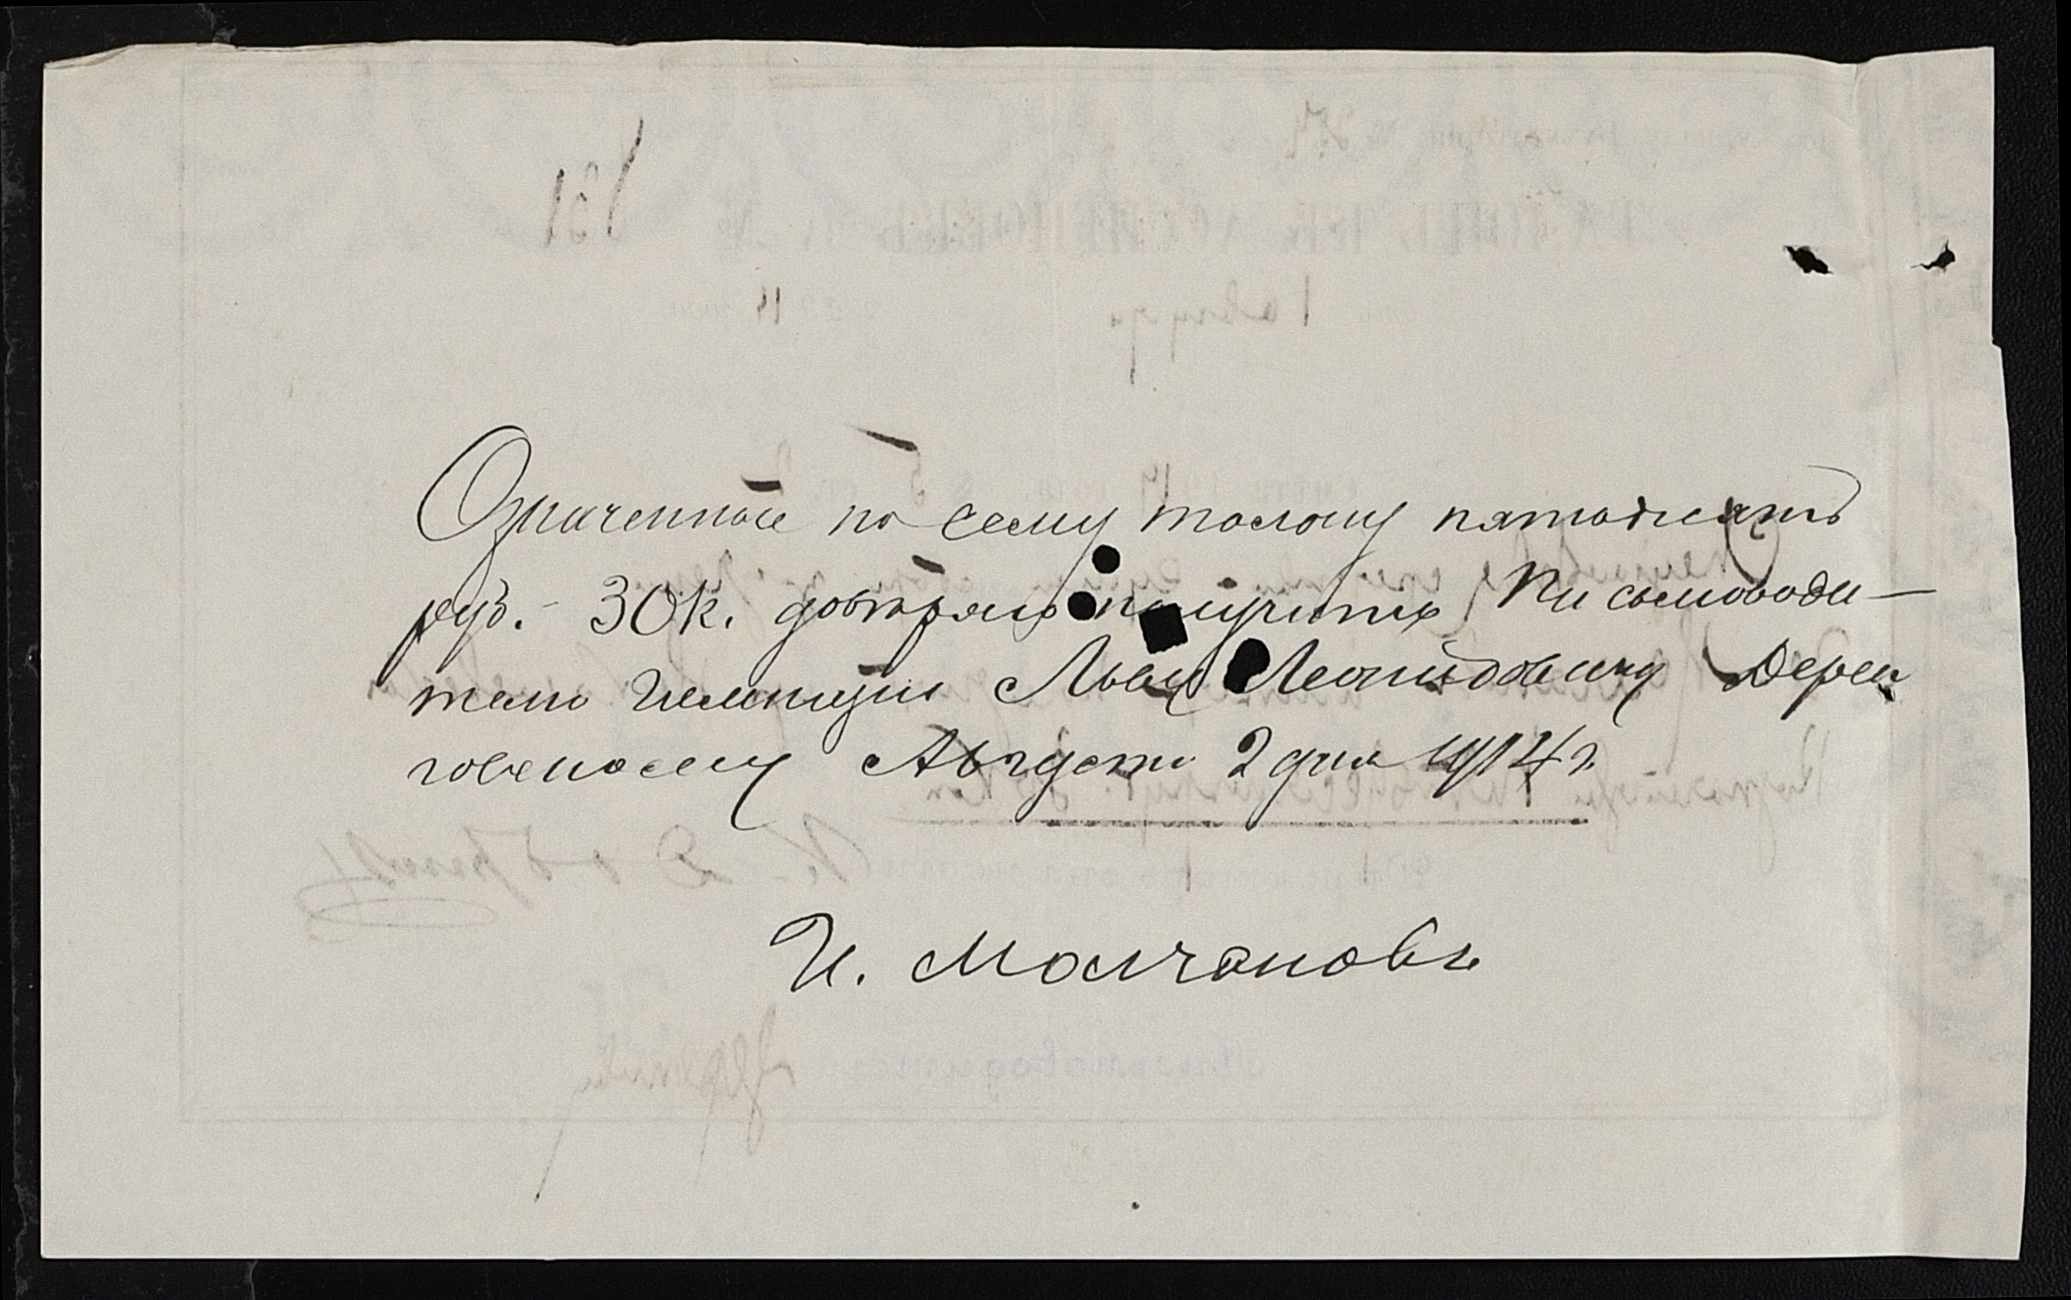 Означенные по сему талону пятьдесятъ
руб. - 30 к. довѣряю получить Письмоводи-
телю Гимназіи Льву Леонидовичу Дерен
говскому Августа 2 дня 1914 г.
И. Молчановъ